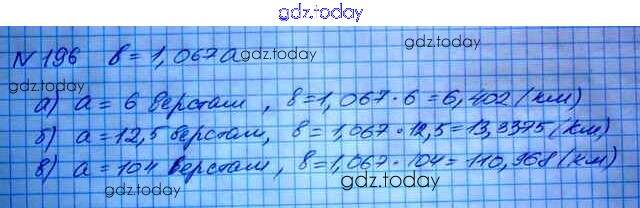 gdz.today
N 196 в = 1,067а gdz.today gdz.today
а) а = 6 верстам, в = 1,067 · 6 = 6,402 (км)
gdz.today
б) а = 12,5 верстам, в = 1,067 · 12,5 = 13,3375 (км)
в) а = 104 верстам, в = 1,067 · 104 = 110,968 (км)
gdz.today gdz.today